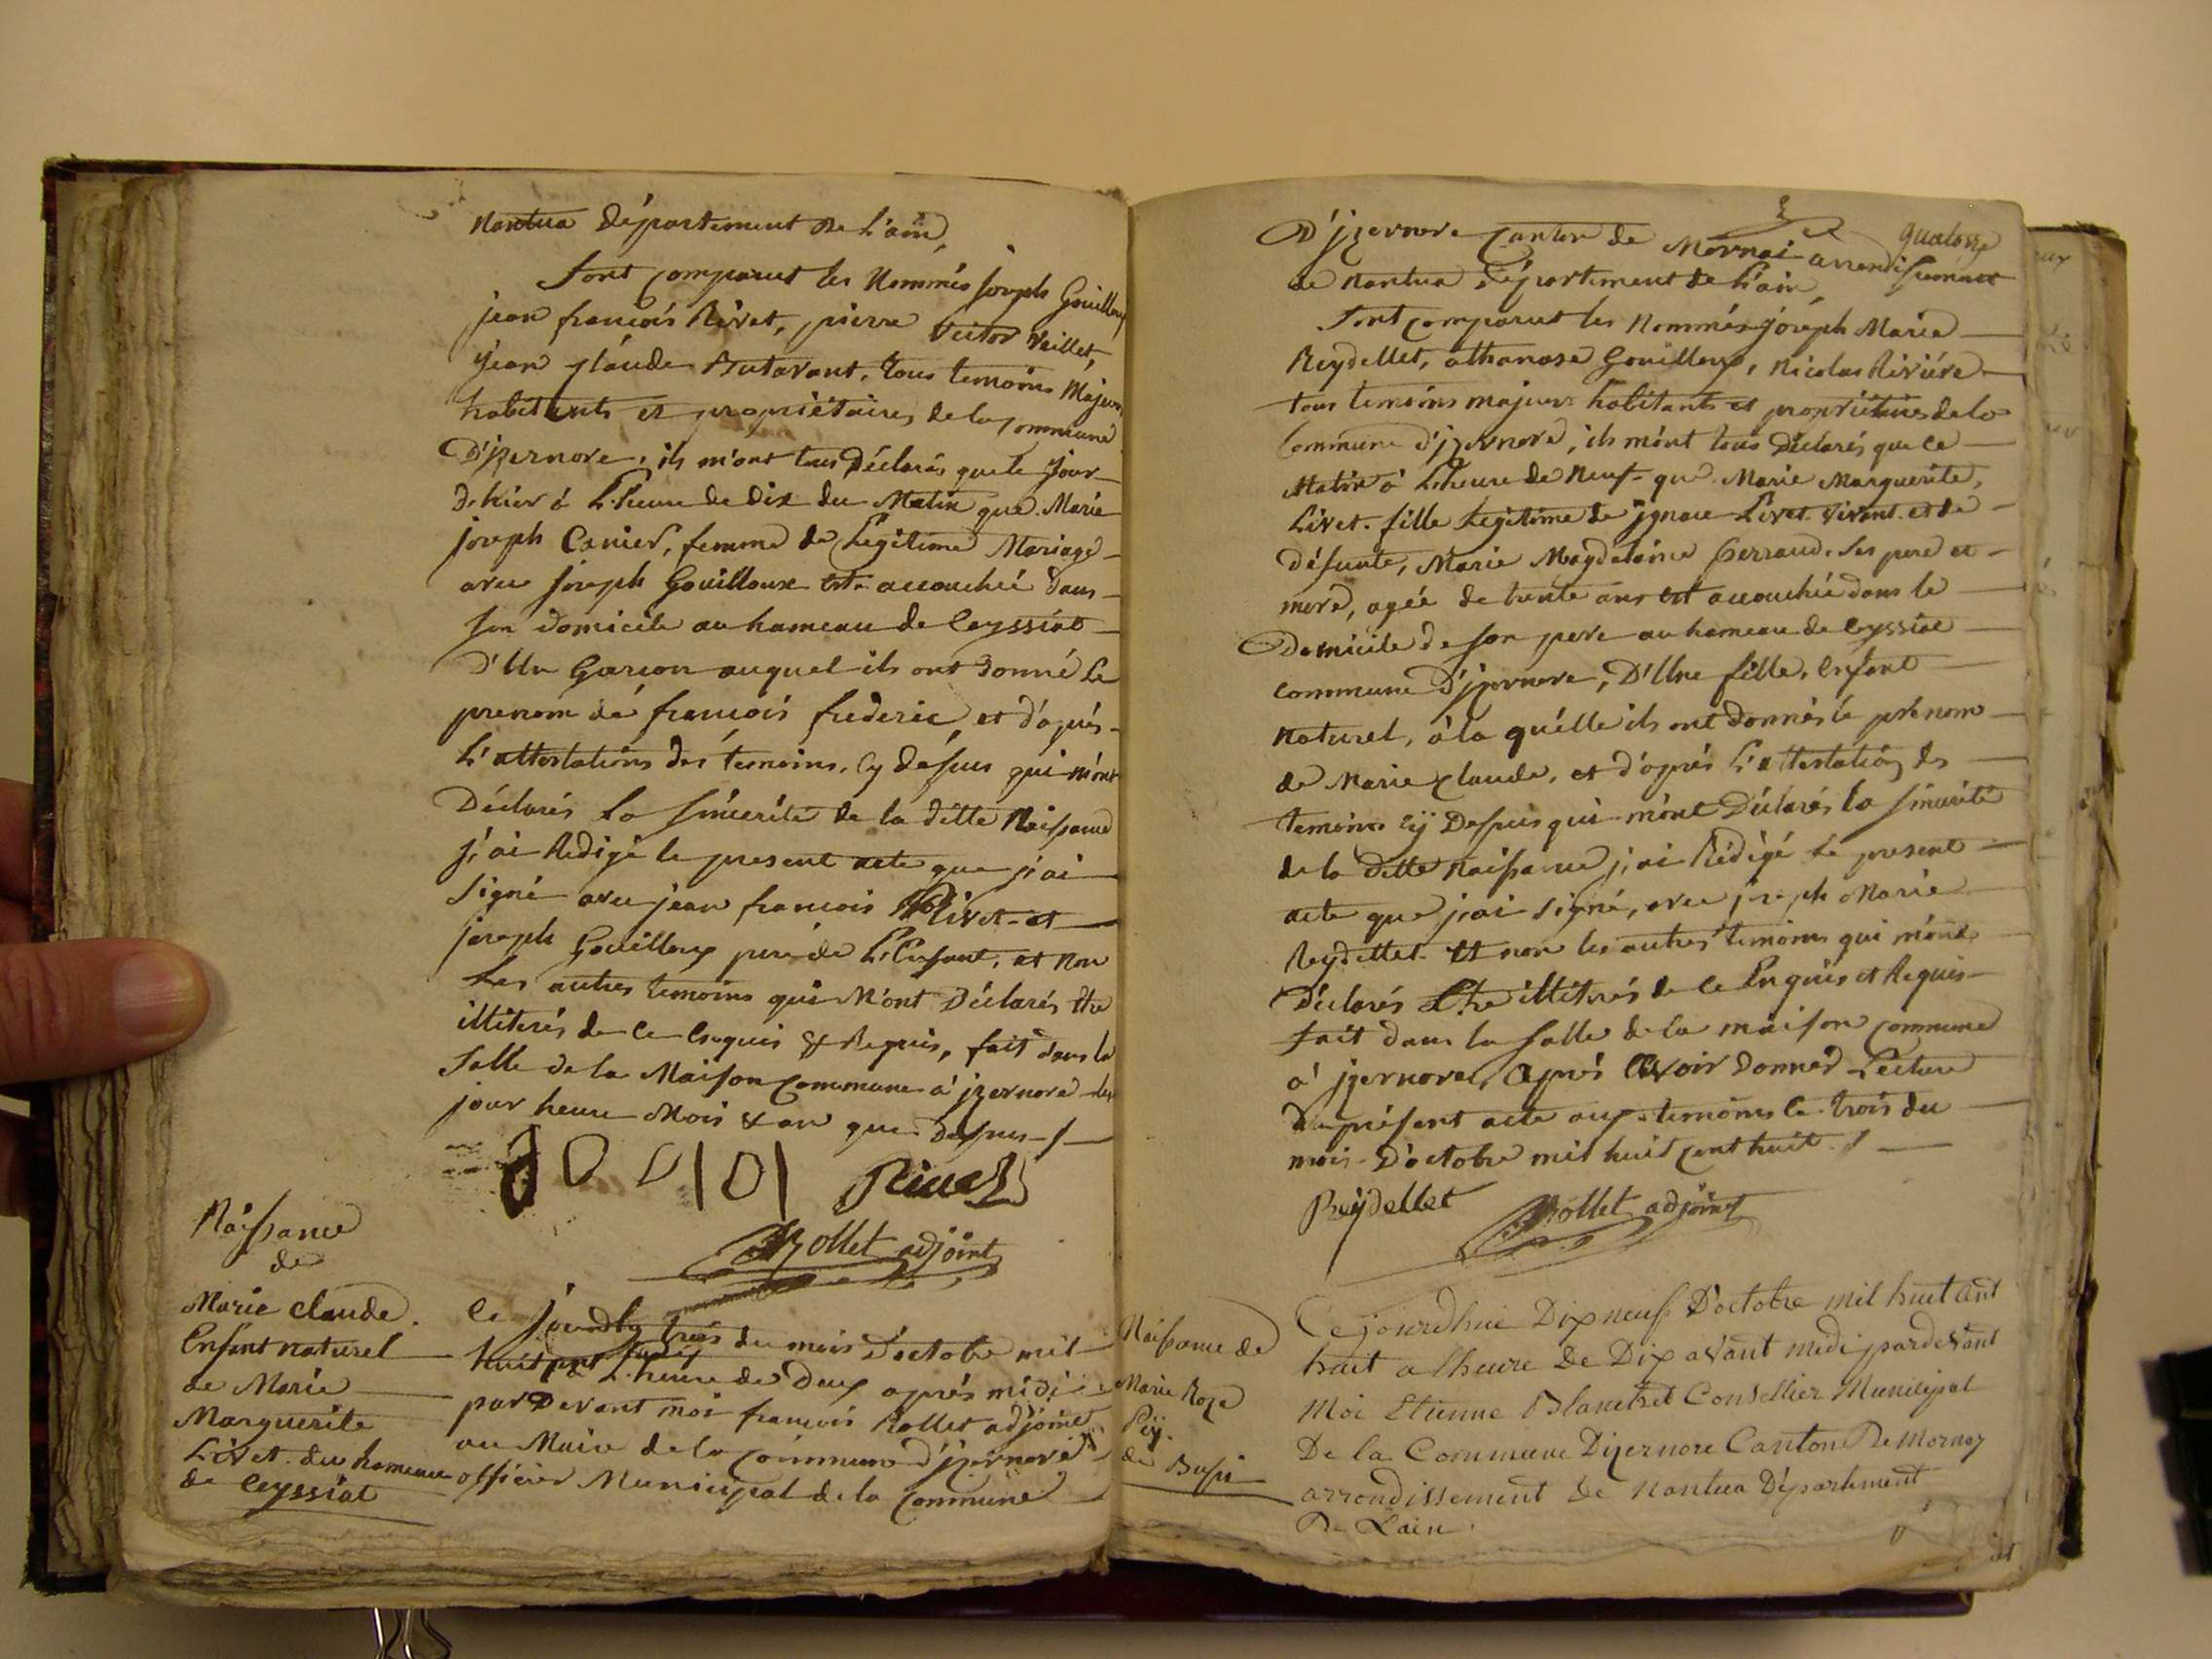 Nantua département de l'ain,
Sont comparut les Nommés joseph Gouilloux
jean françois Rivet, pierre Victor Vaillet,
jean claude Butavant, tous temoins Majeurs
habitants et propriétaires de la commune
D'jzernore, ils m'ont tous Déclarés que le jour
d'hier à L'heure de dix du Matin que Marie
joseph Canier, femme de Légitime Mariage
avec joseph Gouilloux est accouchée dans
son domicile au hameau de Ceyssiat
d'Un Garçon auquel ils ont donné Le
prenom de françois frederic, et d'aprés
L'attestations des temoins, Cy dessus qui m'ont
Déclarés la sincerité de la ditte Naissance
j'ai Redigé le present acte que j'ai
signé avec jean francois Rivet et
joseph Gouilloux pere de L'Enfant, et Non
Les autres temoins qui M'ont Déclarés Etre
illiterés de Ce Enquis & Requis, fait dans la
Salle de la Maison Commune à jzernore les
jour heure Mois & an que dessus
Rivet
Rollet adjoint
Naissance
de
Marie claude
Enfant naturel
de Marie
Marguerite
Livet du hameau
de Ceyssiat
Ce jourdhy trois du mois d'octobre mil
huit cent huit à L'heure de deux aprés midi
par Devant moi francois Rollet adjoint
au Maire de la Commune d'jzernore
officier Municipal de la Commune
quatorze
D'jzernore Canton de Mornai arrondissement
de Nantua département de L'ain,
Sont comparut les Nommés joseph Marie
Reydellet, athanase Gouilloux, Nicolas Riviére
tous temoins majeurs habitants et propriétaires de la
Commune d'jzernore, ils m'ont tous Déclarés que Ce
Matin à L'heure de Neuf que Marie Marguerite,
Livet fille Legitime de jgnace Livet vivant et de
défunte, Marie Magdelaine perraud ses pere et
mere, agée de trente ans est accouchée dans le
Domicile de son pere au hameau de Ceyssiat
commune D'jzernore, D'Une fille, Enfant
naturel, à la quelle ils ont donnés le prénom
de Marie Claude, et d'aprés L'attestation des
temoins Cy Dessus qui m'ont Déclarés la sincerité
de la ditte Naissance j'ai Rédigé le present
acte que j'ai signé, avec joseph Marie
Reydellet Et non les autres temoins qui m'ont
Déclarés Etre illiterés de Ce Enquis et Requis
fait dans la salle de la maison commune
à jzernore, Aprés Avoir donner Lecture
Du présent acte aux temoins Ce trois du
mois D'octobre mil huit cent huit
Reydellet
Rollet adjoint
Naissance de
Marie Roze
Pey
de Bussi
Ce jourdhui Dix neuf D'octobre mil huit Cent
huit a lheure De Dix avant midi pardevant
Moi Etienne Blanchet Consellier Municipal
De la Commune Dizernore Canton De Mornay
arrondissement De Nantua Département
De Lain